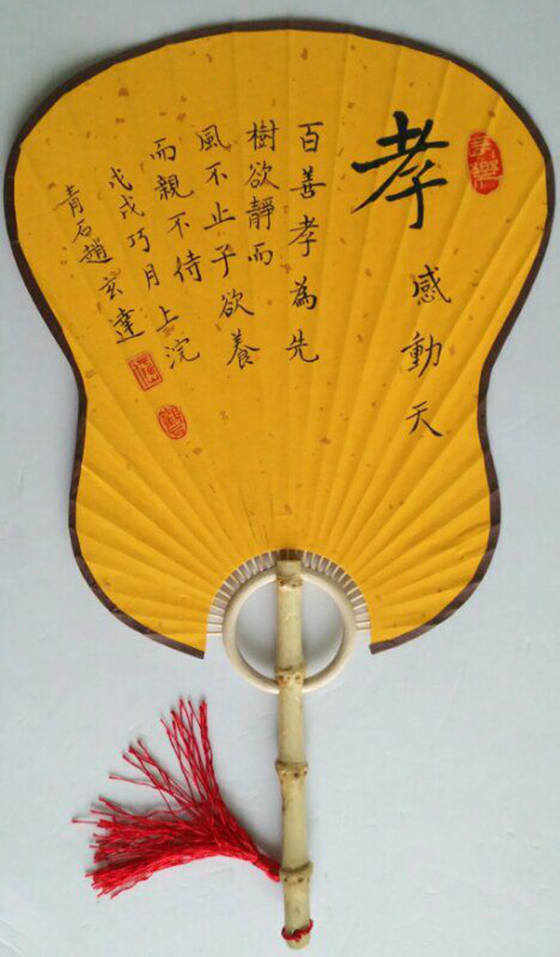 孝感動天
百善孝為先
樹欲靜而
風不止子欲養
而親不待
戊戌巧月上浣
青石趙玄達